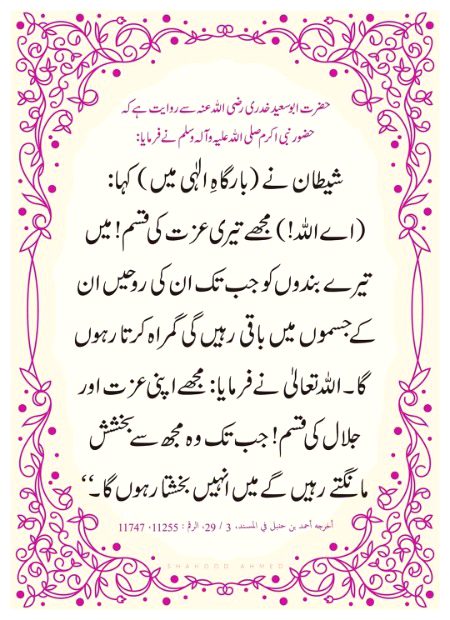 حضرت ابو سعید خدری رضی اللہ عنہ سے روایت ہے کہ
حضور نبی اکرم صلی اللہ علیہ وآلہ وسلم نے فرمایا:
شیطان نے (بارگاہِ الٰہی میں) کہا:
(اے اللہ!) مجھے تیری عزت کی قسم! میں
تیرے بندوں کو جب تک ان کی روحیں ان
کے جسموں میں باقی رہیں گی گمراہ کرتا رہوں
گا۔ اللہ تعالیٰ نے فرمایا: مجھے اپنی عزت اور
جلال کی قسم! جب تک وہ مجھ سے بخشش
مانگتے رہیں گے میں انہیں بخشتا رہوں گا۔‘‘
أخرجه أحمد بن حنبل في المسند، 3 / 29، الرقم : 11255، 11747
SHAHOOD AHMED